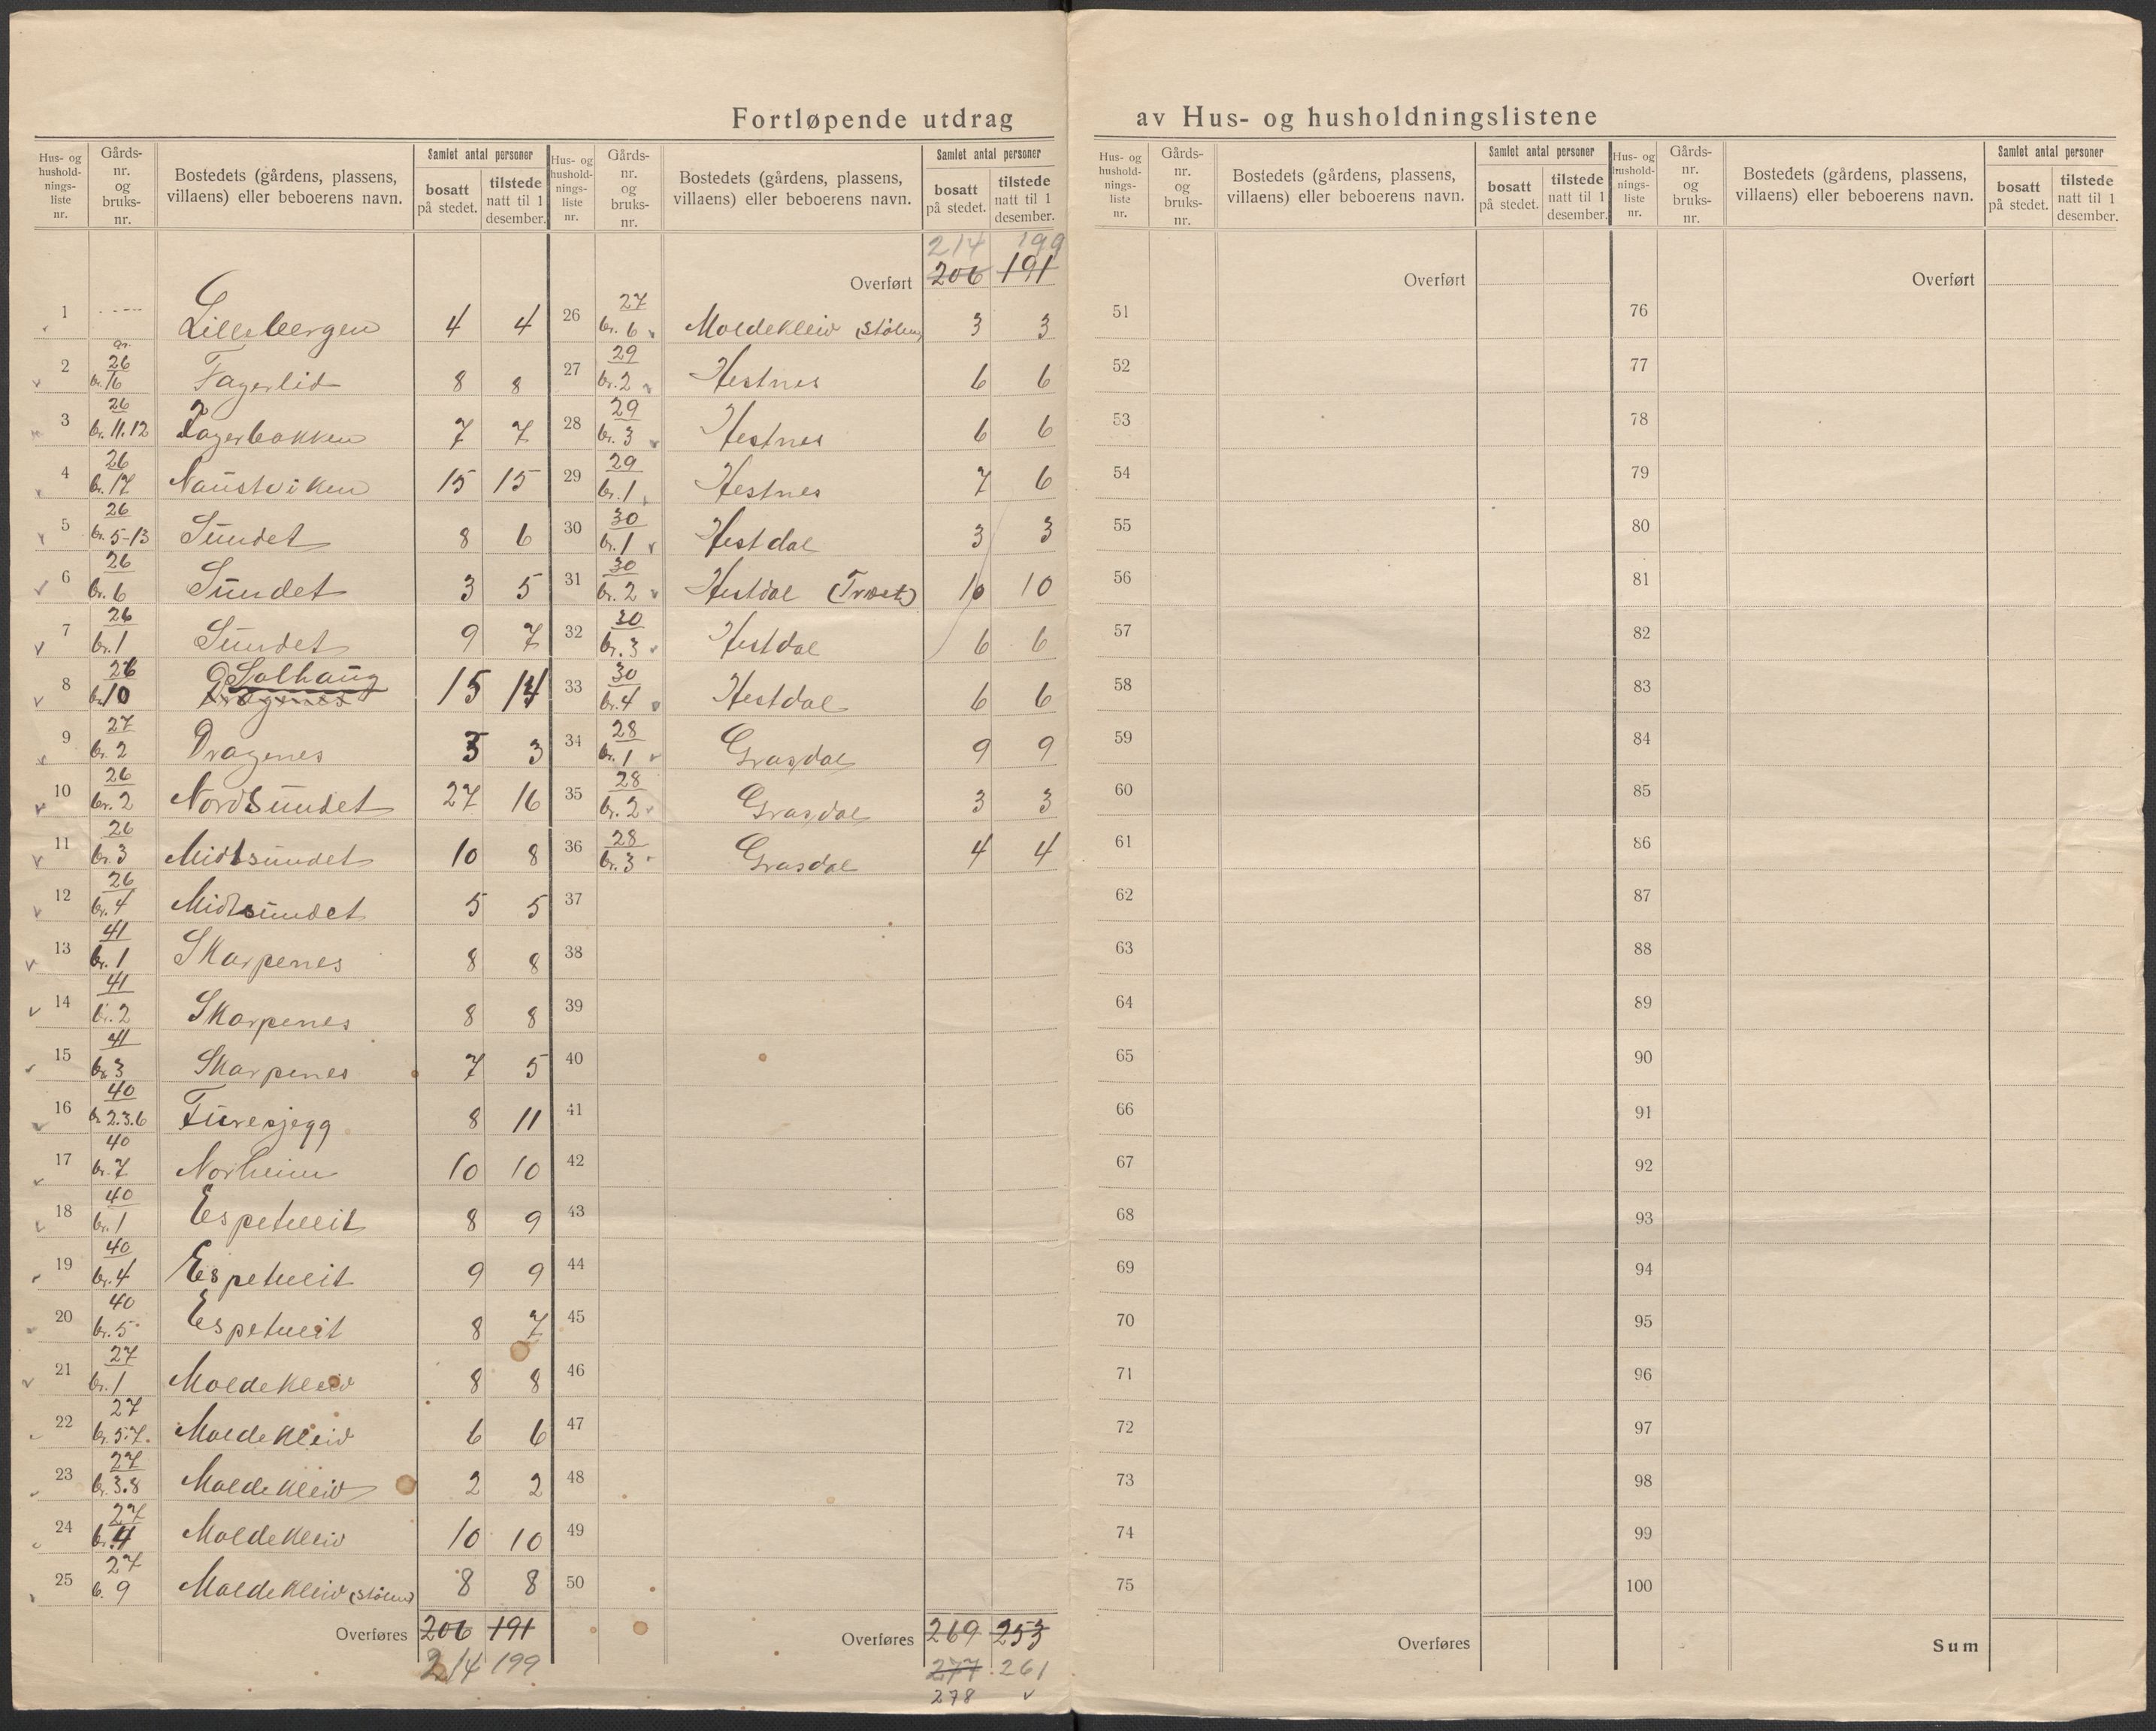 Fortløpende utdrag av Hus- og husholdningslistene
Hus- og hushold-nings-liste nr. Gårds-nr. og bruks-nr. Bostedets (gårdens, plassens, villaens) eller beboerens navn. Samlet antal personer bosatt på stedet. tilstede natt til 1 desember.
1 Lillebergen 4 4
2 gr. 26 br. 16 Fagerlid 8 8
3 26 br. 11.12 Fagerbakken 7 7
4 26 br. 17 Naustviken 15 15
5 26 br. 5-13 Sundet 8 6
6 26 br. 6 Sundet 3 5
7 26 br. 1 Sundet 9 7
8 26 br. 10 Solhaug Dragenes 15 14
9 27 br. 2 Dragenes 3 3
10 26 br. 2 Nordsundet 27 16
11 26 br. 3 Midtsundet 10 8
12 26 br. 4 Midtsundet 5 5
13 41 br. 1 Skarpenes 8 8
14 41 br. 2 Skarpenes 8 8
15 41 br. 3 Skarpenes 7 5
16 40 br. 2.3.6 Furesjegg 8 11
17 40 br. 7 Norheim 10 10
18 40 br. 1 Espetveit 8 9
19 40 br. 4 Espetveit 9 9
20 40 br. 5 Espetveit 8 7
21 27 br. 1 Moldekleiv 8 8
22 27 br. 5.7. Moldekleiv 6 6
23 27 br. 3.8 Moldekleiv 2 2
24 27 br. 4 Moldekleiv 10 10
25 27 b. 9 Moldekleiv (Stölen) 8 8
Overføres 206 191
214 199
Hus- og hushold-nings-liste nr. Gårds-nr. og bruks-nr. Bostedets (gårdens, plassens, villaens) eller beboerens navn. Samlet antal personer bosatt på stedet. tilstede natt til 1 desember.
214 199
Overført 206 191
26 27 br. 6 Moldekleiv (Stölen) 3 3
27 29 br. 2 Hestnes 6 6
28 29 br. 3 Hestnes 6 6
29 29 br. 1 Hestnes 7 6
30 30 br. 1 Hestdal 3 3
31 30 br. 2 Hestdal (Træet) 10 10
32 30 br. 3 Hestdal 6 6
33 30 br. 4 Hestdal 6 6
34 28 br. 1 Grasdal 9 9
35 28 br. 2 Grasdal 3 3
36 28 br. 3 Grasdal 4 4
37
38
39
40
41
42
43
44
45
46
47
48
49
50
Overføres 269 253
277 261
278
Hus- og hushold-nings-liste nr. Gårds-nr. og bruks-nr. Bostedets (gårdens, plassens, villaens) eller beboerens navn. Samlet antal personer bosatt på stedet. tilstede natt til 1 desember.
Overført
51
52
53
54
55
56
57
58
59
60
61
62
63
64
65
66
67
68
69
70
71
72
73
74
75
Overføres
Hus- og hushold-nings-liste nr. Gårds-nr. og bruks-nr. Bostedets (gårdens, plassens, villaens) eller beboerens navn. Samlet antal personer bosatt på stedet. tilstede natt til 1 desember.
Overført
76
77
78
79
80
81
82
83
84
85
86
87
88
89
90
91
92
93
94
95
96
97
98
99
100
Sum